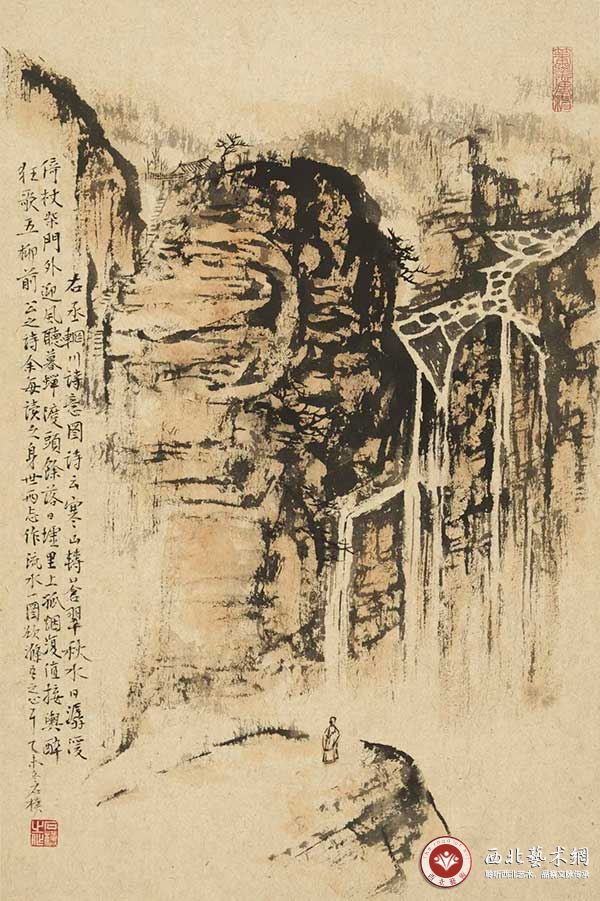 右丞輞川詩意图詩云寒山轉蒼翠秋水日潺湲
倚杖柴門外迎風聽暮蟬渡頭餘落日墟里上孤烟復值接輿醉
狂歌五柳前公之詩余每讀之身世两忘作流水一图欲滌吾之心耳乙未冬石
西北藝术網
聆听西北艺术，品察文脉传承